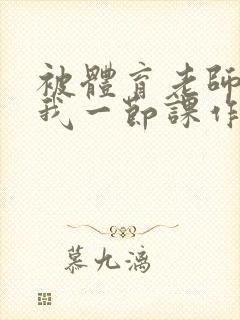 被體育老師
我一節課作
慕九漓